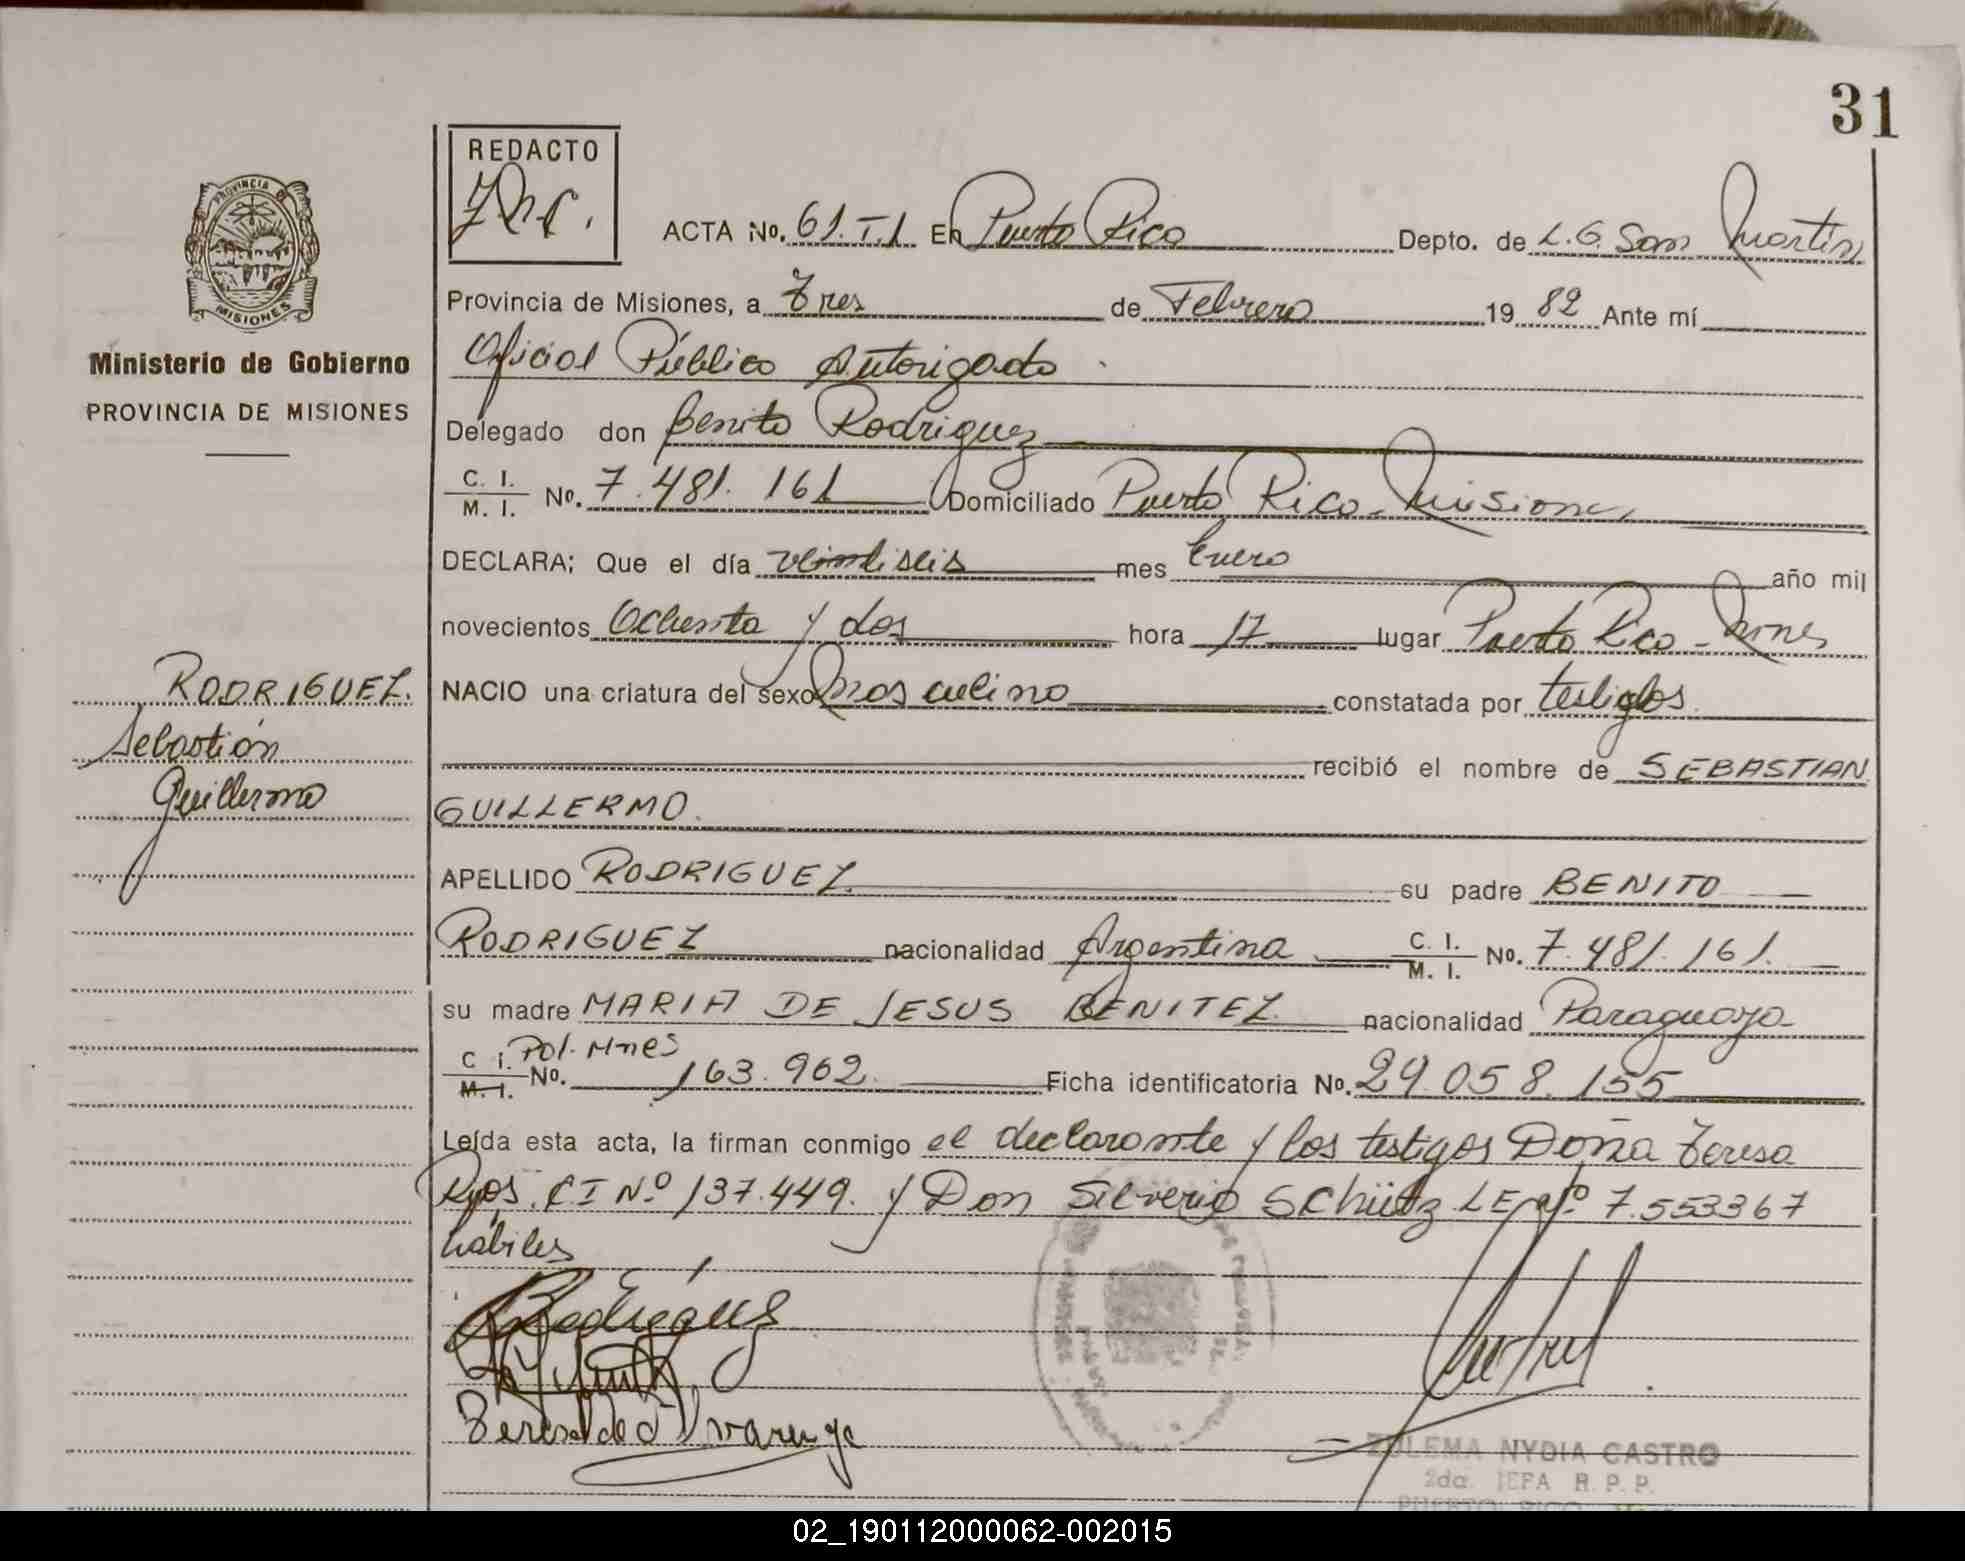 31
REDACTO
ACTA No. 61. T.1 En Puerto Rico Depto. de L.G. San Martín
PROVINCIA DE
MISIONES
Provincia de Misiones, a Tres de Febrero 19 82 Ante mí
Ministerio de Gobierno
Oficial Público Autorizado.
PROVINCIA DE MISIONES
Delegado don Benito Rodriguez
C. I.
M. I. No. 7.481.161 Domiciliado Puerto Rico - Misiones
DECLARA; Que el día veintiseis mes Enero año mil
novecientos Ochenta y dos hora 17 lugar Puerto Rico - Mnes
RODRIGUEZ.
NACIO una criatura del sexo masculino constatada por testigos
Sebastián
recibió el nombre de SEBASTIAN
Guillermo
GUILLERMO.
APELLIDO RODRIGUEZ su padre BENITO
RODRIGUEZ nacionalidad Argentina C. I. M. I. No. 7.481.161.
su madre MARIA DE JESUS BENITEZ nacionalidad Paraguaya
C I. Pol. Mnes
M. I. No. 163.962. Ficha identificatoria No. 29.058.155
Leída esta acta, la firman conmigo el declarante y los testigos Doña Teresa
CI Nº 137.449. y Don Silverio Schütz LE Nº 7.553367
hábiles
Rodriguez
Teresa de Alvarenga
ZULEMA NYDIA CASTRO
2da. JEFA R. P. P.
PUERTO RICO
02_190112000062-002015